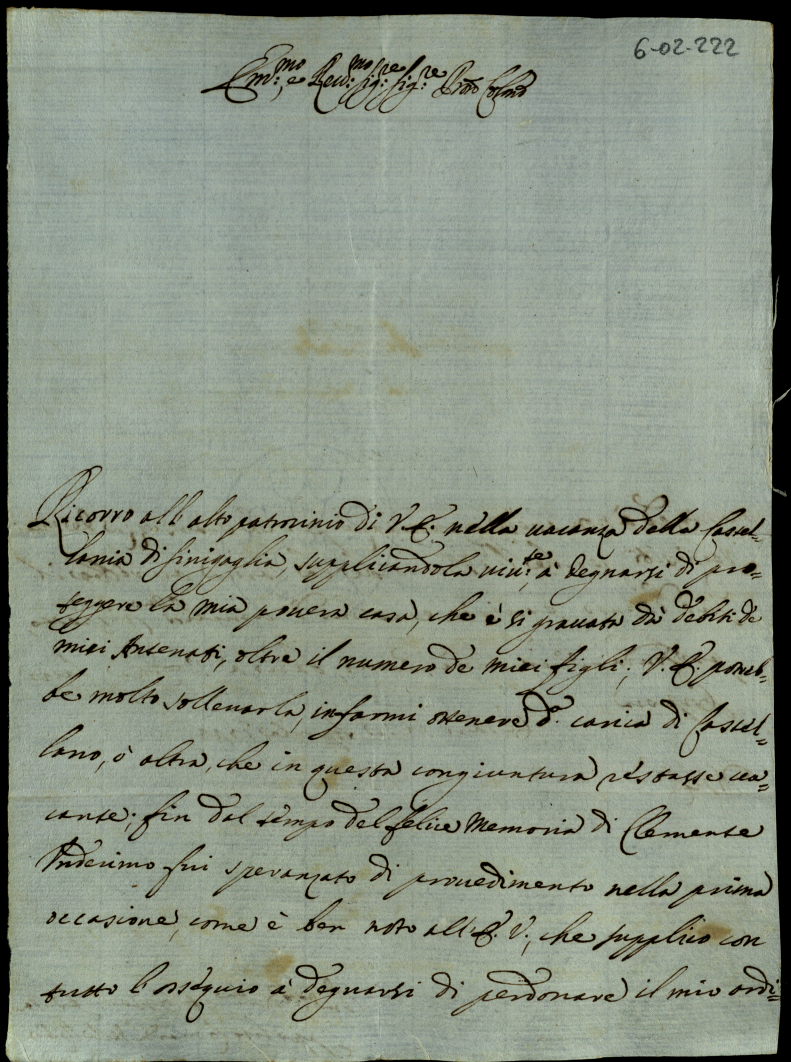 6-02-222
Em.mo, e Reu.mo Sig.re Sig.re Pro͠n Col͠mo
Ricorro all alto patrocinio di V. E. nella uacanza della Castel=
lania di Sinigaglia, supplicandola viu.te, à degnarsi di pro=
teggere la mia pouera casa, che è si grauata dà debiti de
miei Antenati, oltre il numero de miei figli; V. E. potreb=
be molto solleuarla, in farmi ottenere d.a carica di Castel=
lano, ò altra, che in questa congiuntura restasse ua=
cante; fin dal tempo del felice Memoria di Clemente
Undecimo fui speranzato di prouedimento nella prima
occasione, come è ben noto all E. V., che supplico con
tutto l ossequio à degnarsi di perdonare il mio ardi=